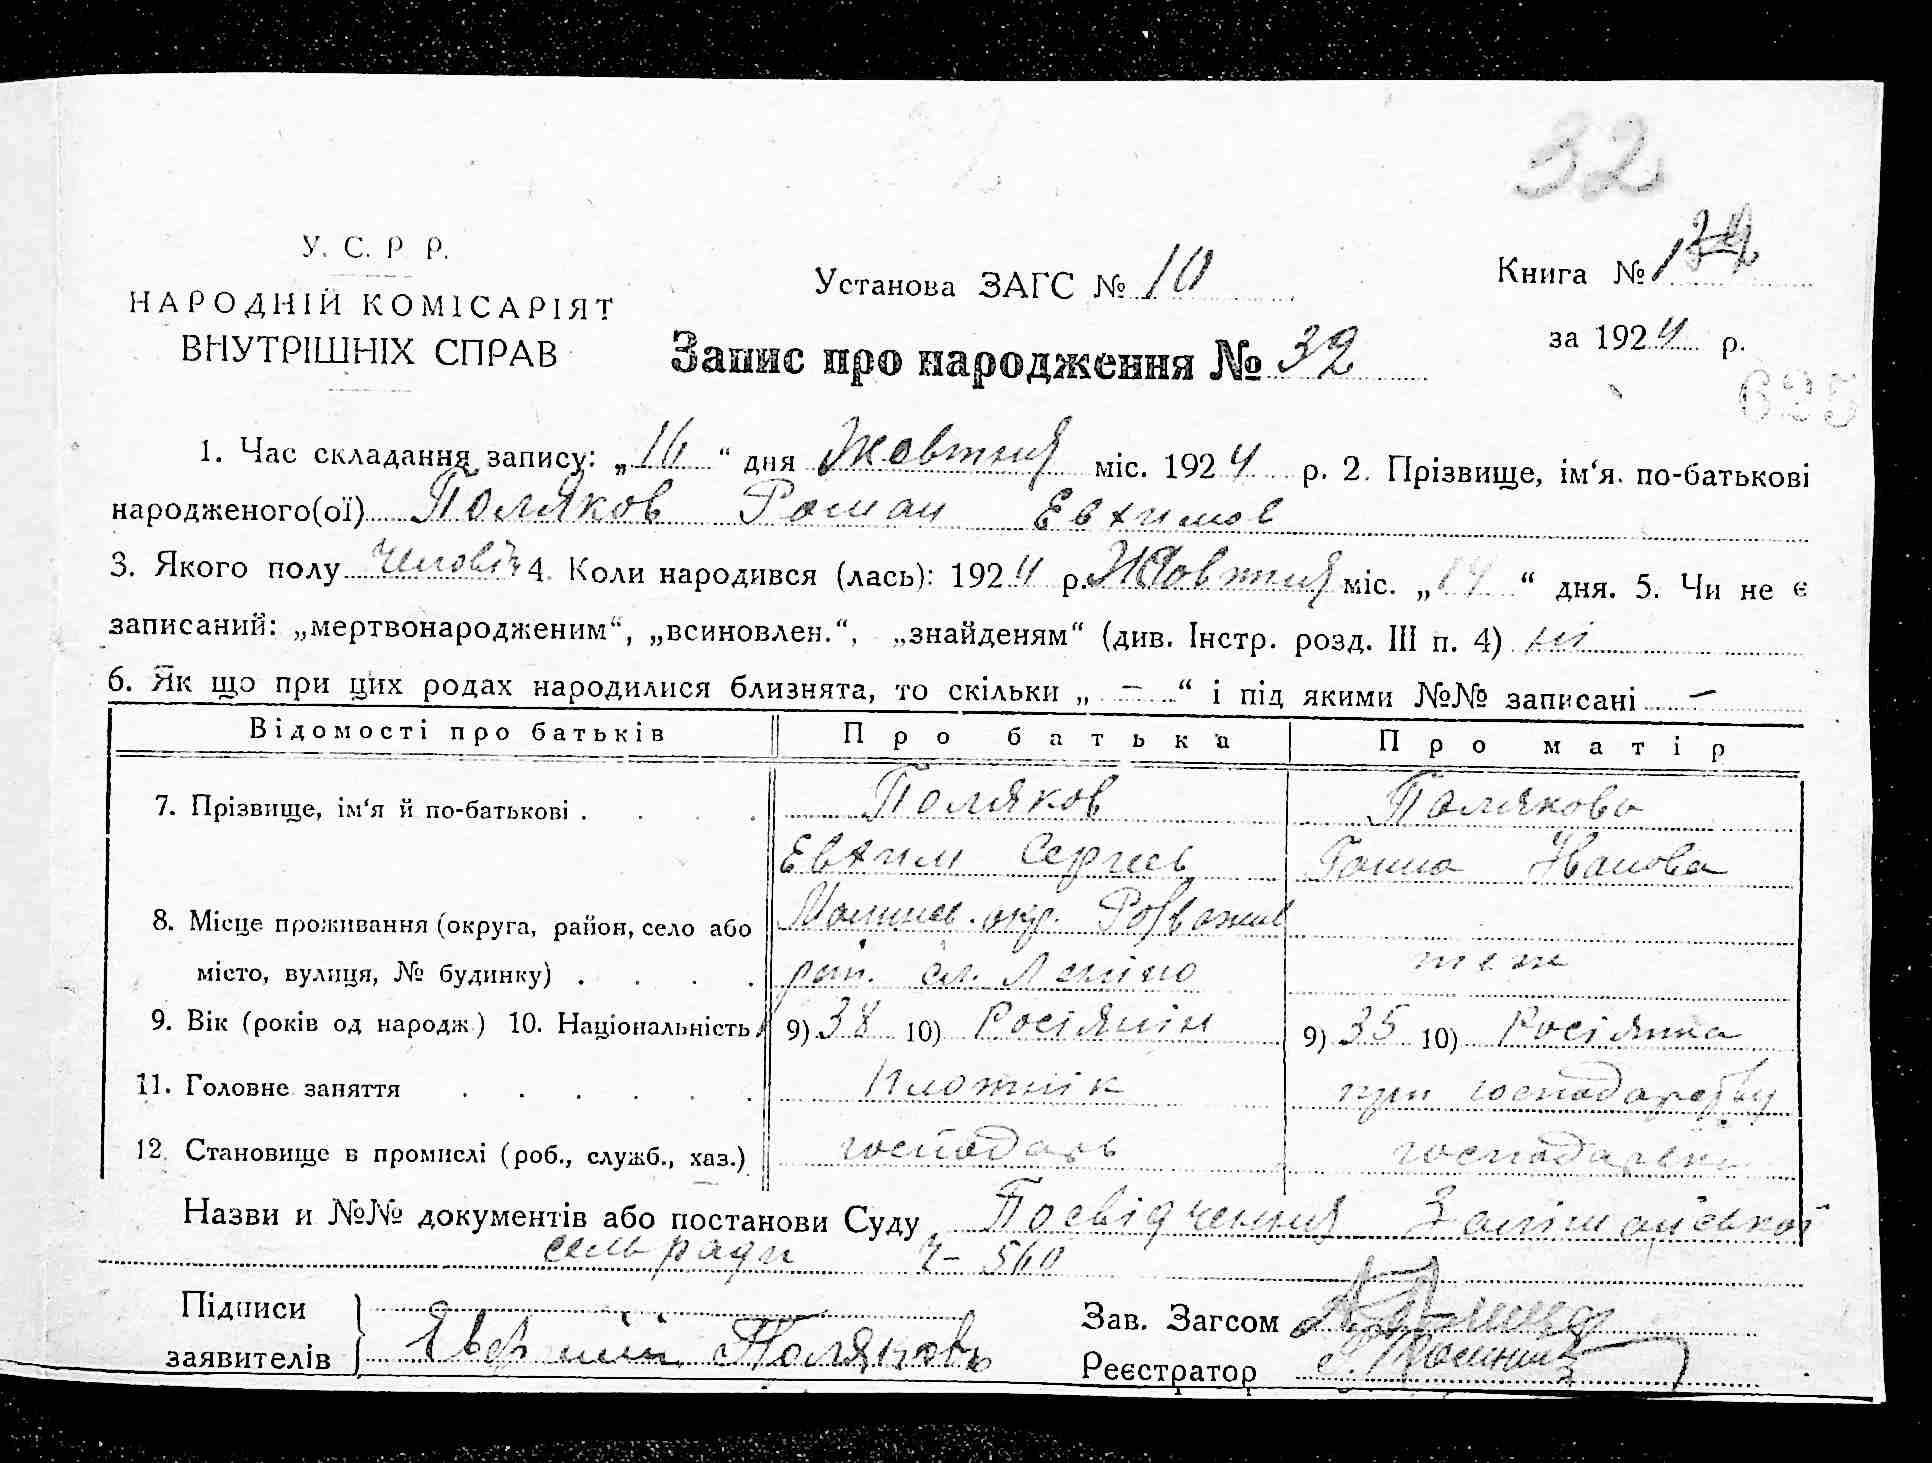 32
У. С. Р. Р.
НАРОДНІЙ КОМІСАРІЯТ
ВНУТРІШНІХ СПРАВ
Установа ЗАГС № 10
Книга №
за 1924 р.
Запис про народження № 32
625
1. Час складання запису: „16“ дня Жовтня міс. 1924 р. 2. Прізвище, ім‘я. по-батькові
народженого(ої) Поляков Роман Евхимов
3. Якого полу 4. Коли народився (лась): 1924 р. Жовтня міс. „14“ дня. 5. Чи не є
записаний: „мертвонародженим“, „всиновлен.“, „знайденям“ (див. Інстр. розд. III п. 4) ні
6. Як що при цих родах народилися близнята, то скільки „ – “ і під якими №№ записані –
Відомості про батьків Про батька Про матір
7. Прізвище, ім‘я й по-батькові . . . . Поляков Полякова
Евхим Сергиев Ганна Иванова
8. Місце проживання (округа, район, село або окр.
місто, вулиця, № будинку) . . . . теж
9. Вік (років од народж.) 10. Національність 9) 38 10) Росіянін 9) 35 10) Росіянка
11. Головне заняття . . . . . . Плотнік при господарству
12. Становище в промислі (роб., служб., хаз.) господарь
Назви и №№ документів або постанови Суду Посвідчення
сельради 560
Підписи
заявителів Поляковъ
Зав. Загсом
Реєстратор